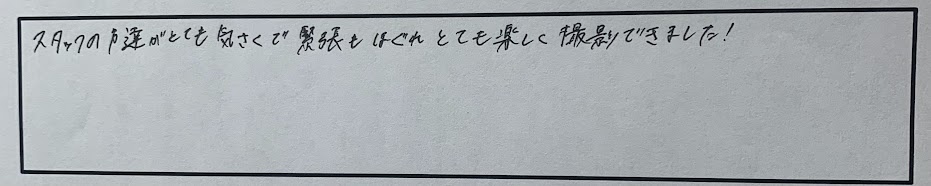 スタッフの方達がとても気さくで緊張もほぐれとても楽しく撮影できました!